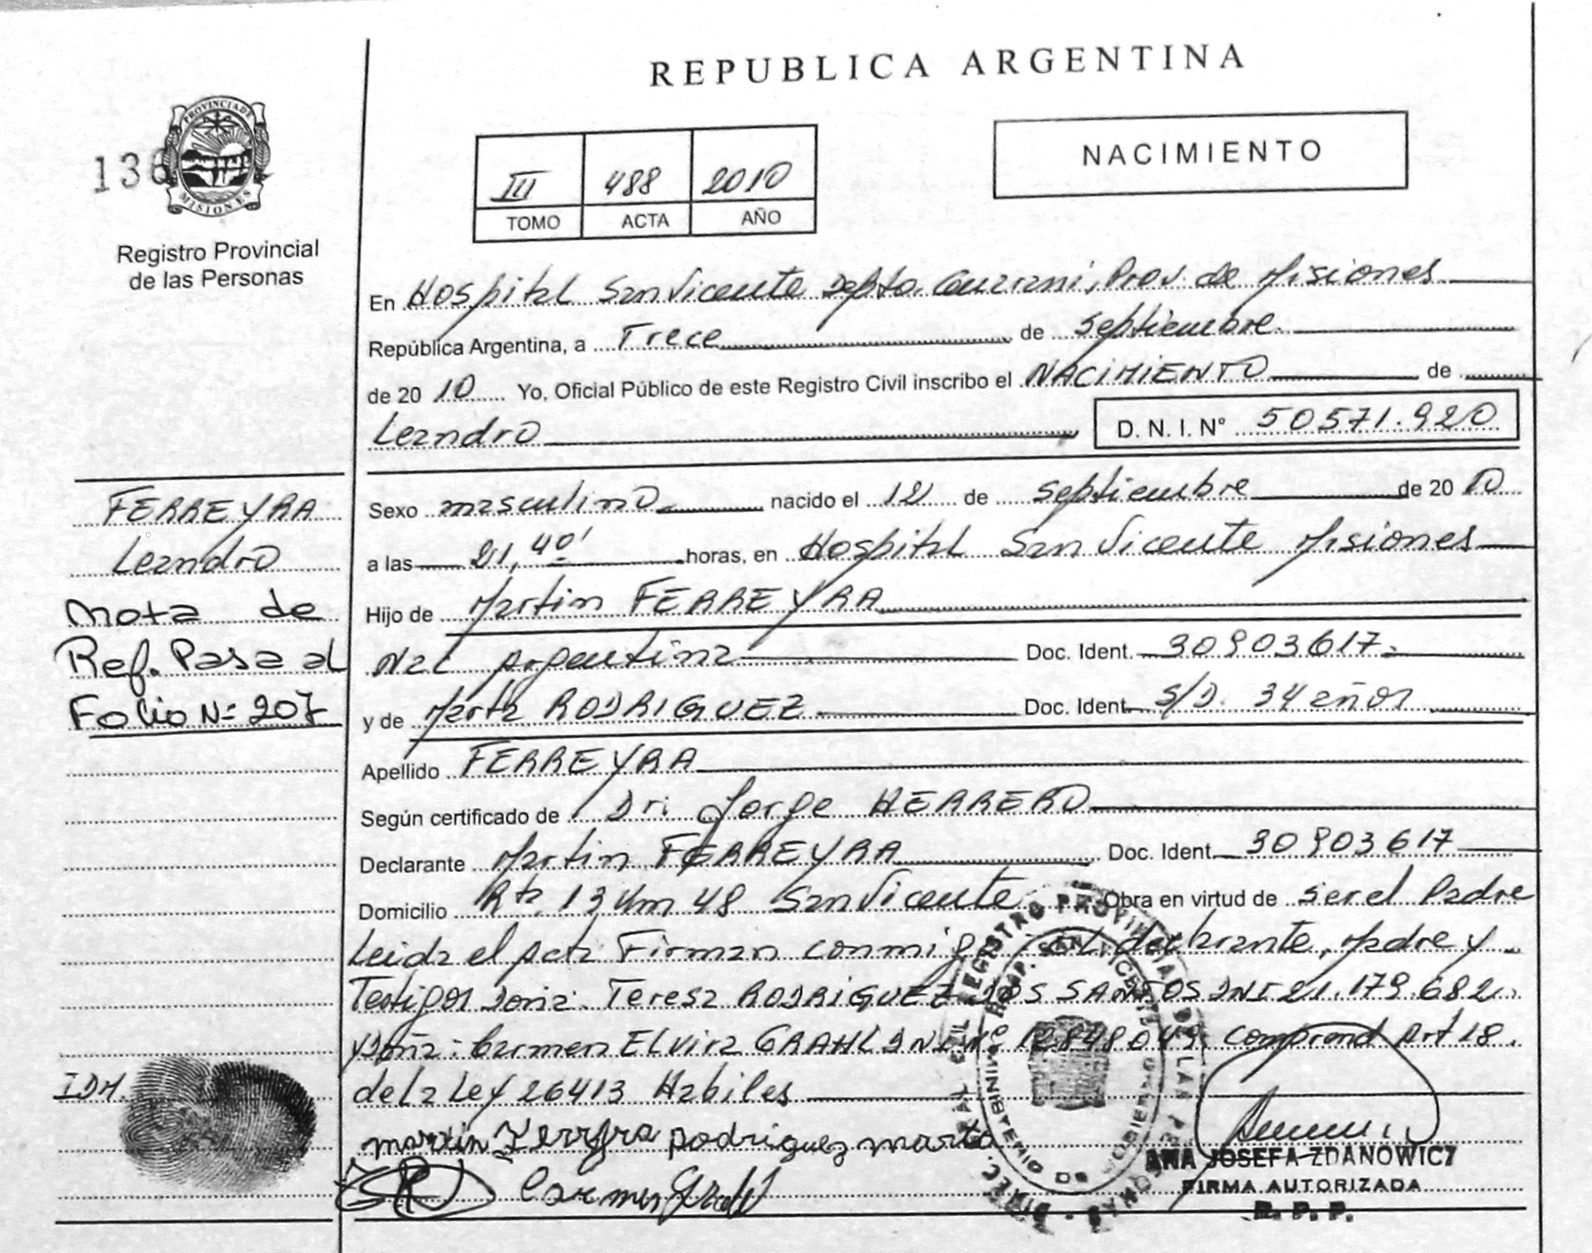 REPUBLICA ARGENTINA
136
PROVINCIA DE
MISIONES
Registro Provincial
de las Personas
III 488 2010
TOMO ACTA AÑO
NACIMIENTO
En Hospital San Vicente Depto. Guarani, Prov. de Misiones
República Argentina, a Trece de septiembre
de 2010 Yo, Oficial Público de este Registro Civil inscribo el NACIMIENTO de
Leandro D.N.I. N° 50571.920
FERREYRA
Leandro
Nota de
Ref. Pasa al
Folio N: 207
Sexo masculino nacido el 12 de septiembre de 2010
a las 21,40' horas, en Hospital San Vicente Misiones
Hijo de Martin FERREYRA
Nac Argentina Doc. Ident. 30903617
y de Marta RODRIGUEZ Doc. Ident. S/D. 34 años
Apellido FERREYRA
Según certificado de Dr. Jorge HERRERO
Declarante Martin FERREYRA Doc. Ident. 30903617
Domicilio Rta. 13 Km 48 San Vicente Obra en virtud de ser el Padre
Leida el acta Firman conmigo el declarante, Madre y
Testigos Doña: Teresa RODRIGUEZ DOS SANTOS DNI 21.179.682
y Doña: Carmen ELVira GRAHL DNI Nº 12848049 comprend Art 18.
de la Ley 26413 Habiles
IDM.
martin Ferreyra rodriguez marta
Carmen Grahl
ANA JOSEFA ZDANOWICZ
FIRMA AUTORIZADA
R. P. P.